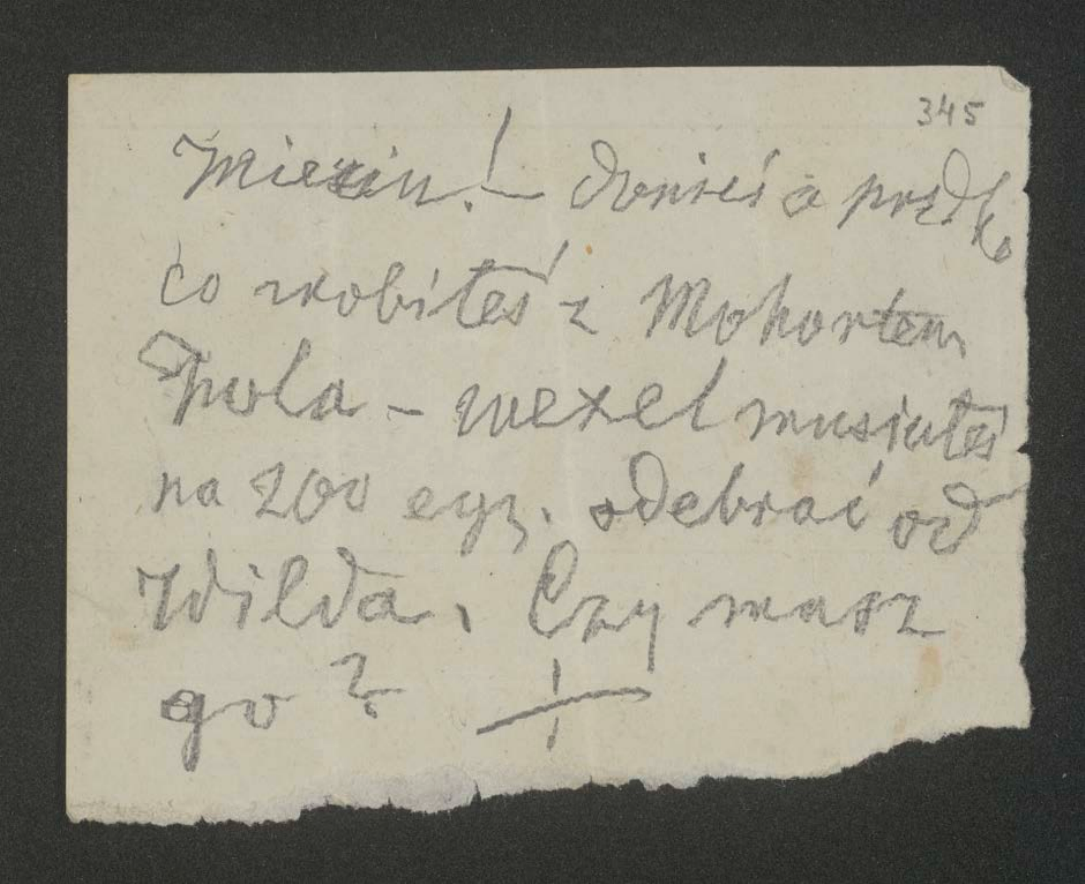 345
Mieciu! – donieś a prędko
co zrobiłeś z Mohortem
Pola – wexel musiałeś
na 200 egz. odebrać od
Wilda. Czy masz
go?